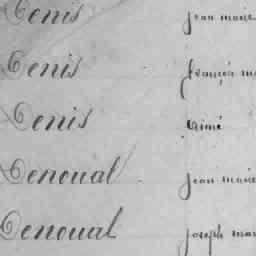 Denis jean marie
Denis françois ma
Denis aimé
Denoual jean marie
Denoual joseph mar